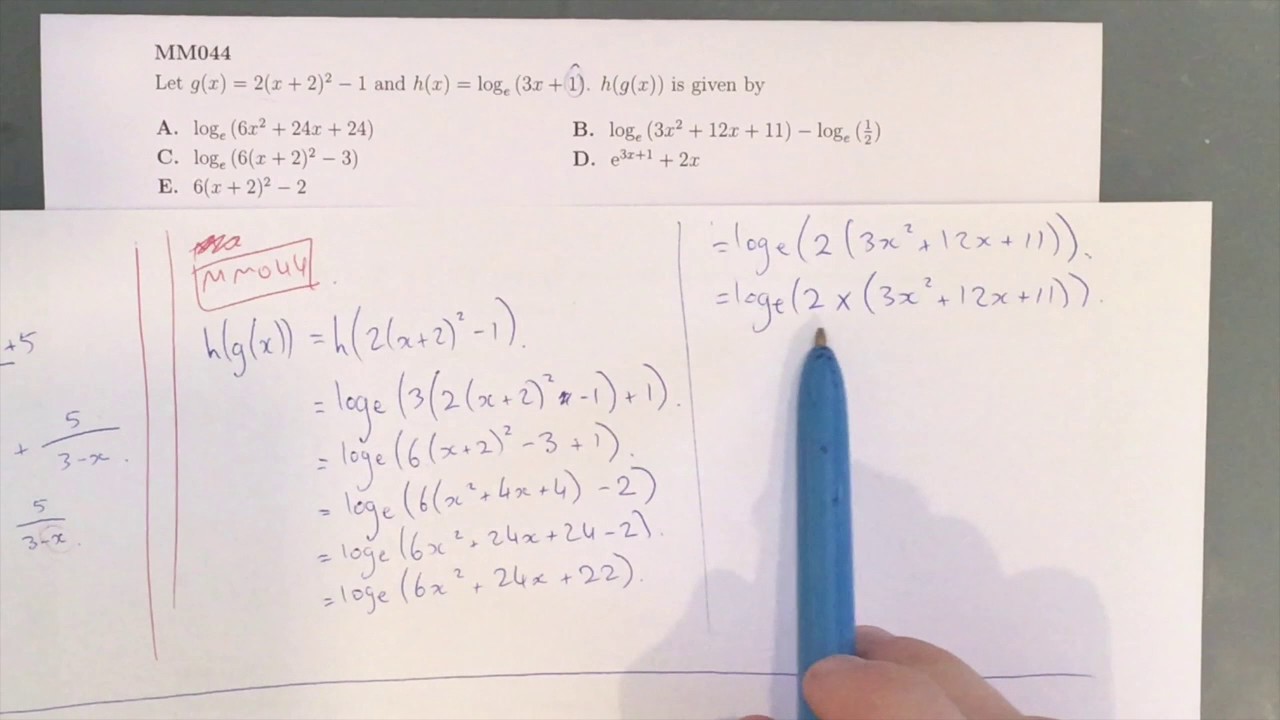 MM044
Let g(x) = 2(x + 2)² − 1 and h(x) = logₑ (3x + 1). h(g(x)) is given by
A. logₑ (6x² + 24x + 24)
B. logₑ (3x² + 12x + 11) − logₑ (½)
C. logₑ (6(x + 2)² − 3)
D. e³ˣ⁺¹ + 2x
E. 6(x + 2)² − 2
+5
+ 5/(3-x).
5/(3-x).
MM044.
h(g(x)) = h(2(x+2)² -1).
= logₑ (3(2(x+2)² -1)+1).
= logₑ (6(x+2)² -3 +1).
= logₑ (6(x²+4x+4) -2)
= logₑ (6x²+24x+24-2).
= logₑ (6x²+24x+22).
= logₑ (2(3x²+12x+11)).
= logₑ (2×(3x²+12x+11)).